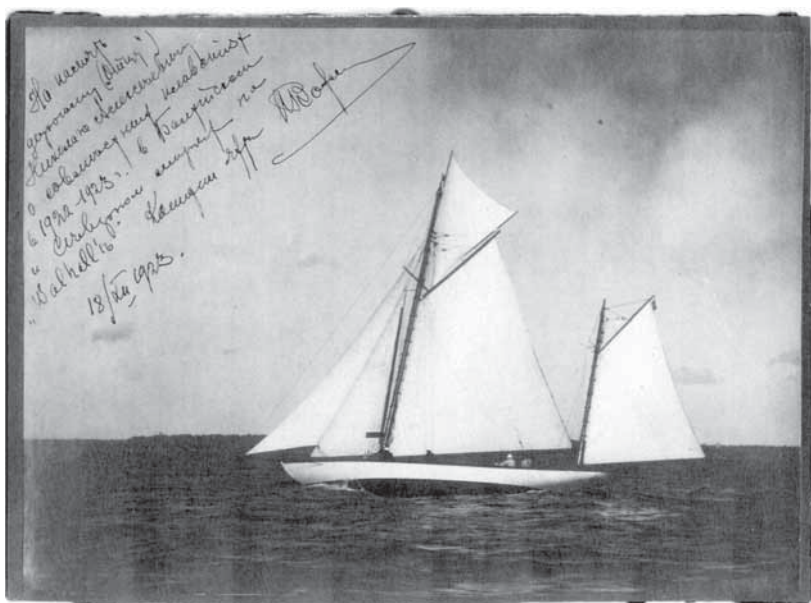 На память
дорогому
Николаю Алексеевичу
о совместных плаваниях
в 1922-1923 г. в Балтийском
и Северном морях на
"Walhall'ѣ".
18/XII 1923.